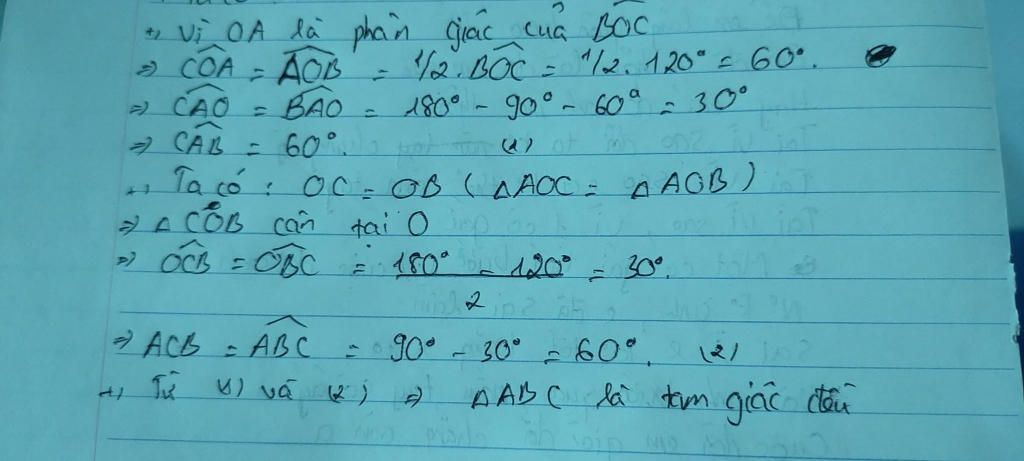 +, Vì OA là phân giác của BÔC
=> CÔA = AÔB = 1/2.BÔC = 1/2.120° = 60°.
=> CÂO = BÂO = 180° - 90° - 60° = 30°
=> CÂB = 60°. (1)
+, Ta có : OC = OB (ΔAOC = ΔAOB)
=> ΔCOB cân tại O
=> OCB = OBC = (180° - 120°)/2 = 30°.
=> ACB = ABC = 90° - 30° = 60°. (2)
+, Từ (1) và (2) => ΔABC là tam giác đều